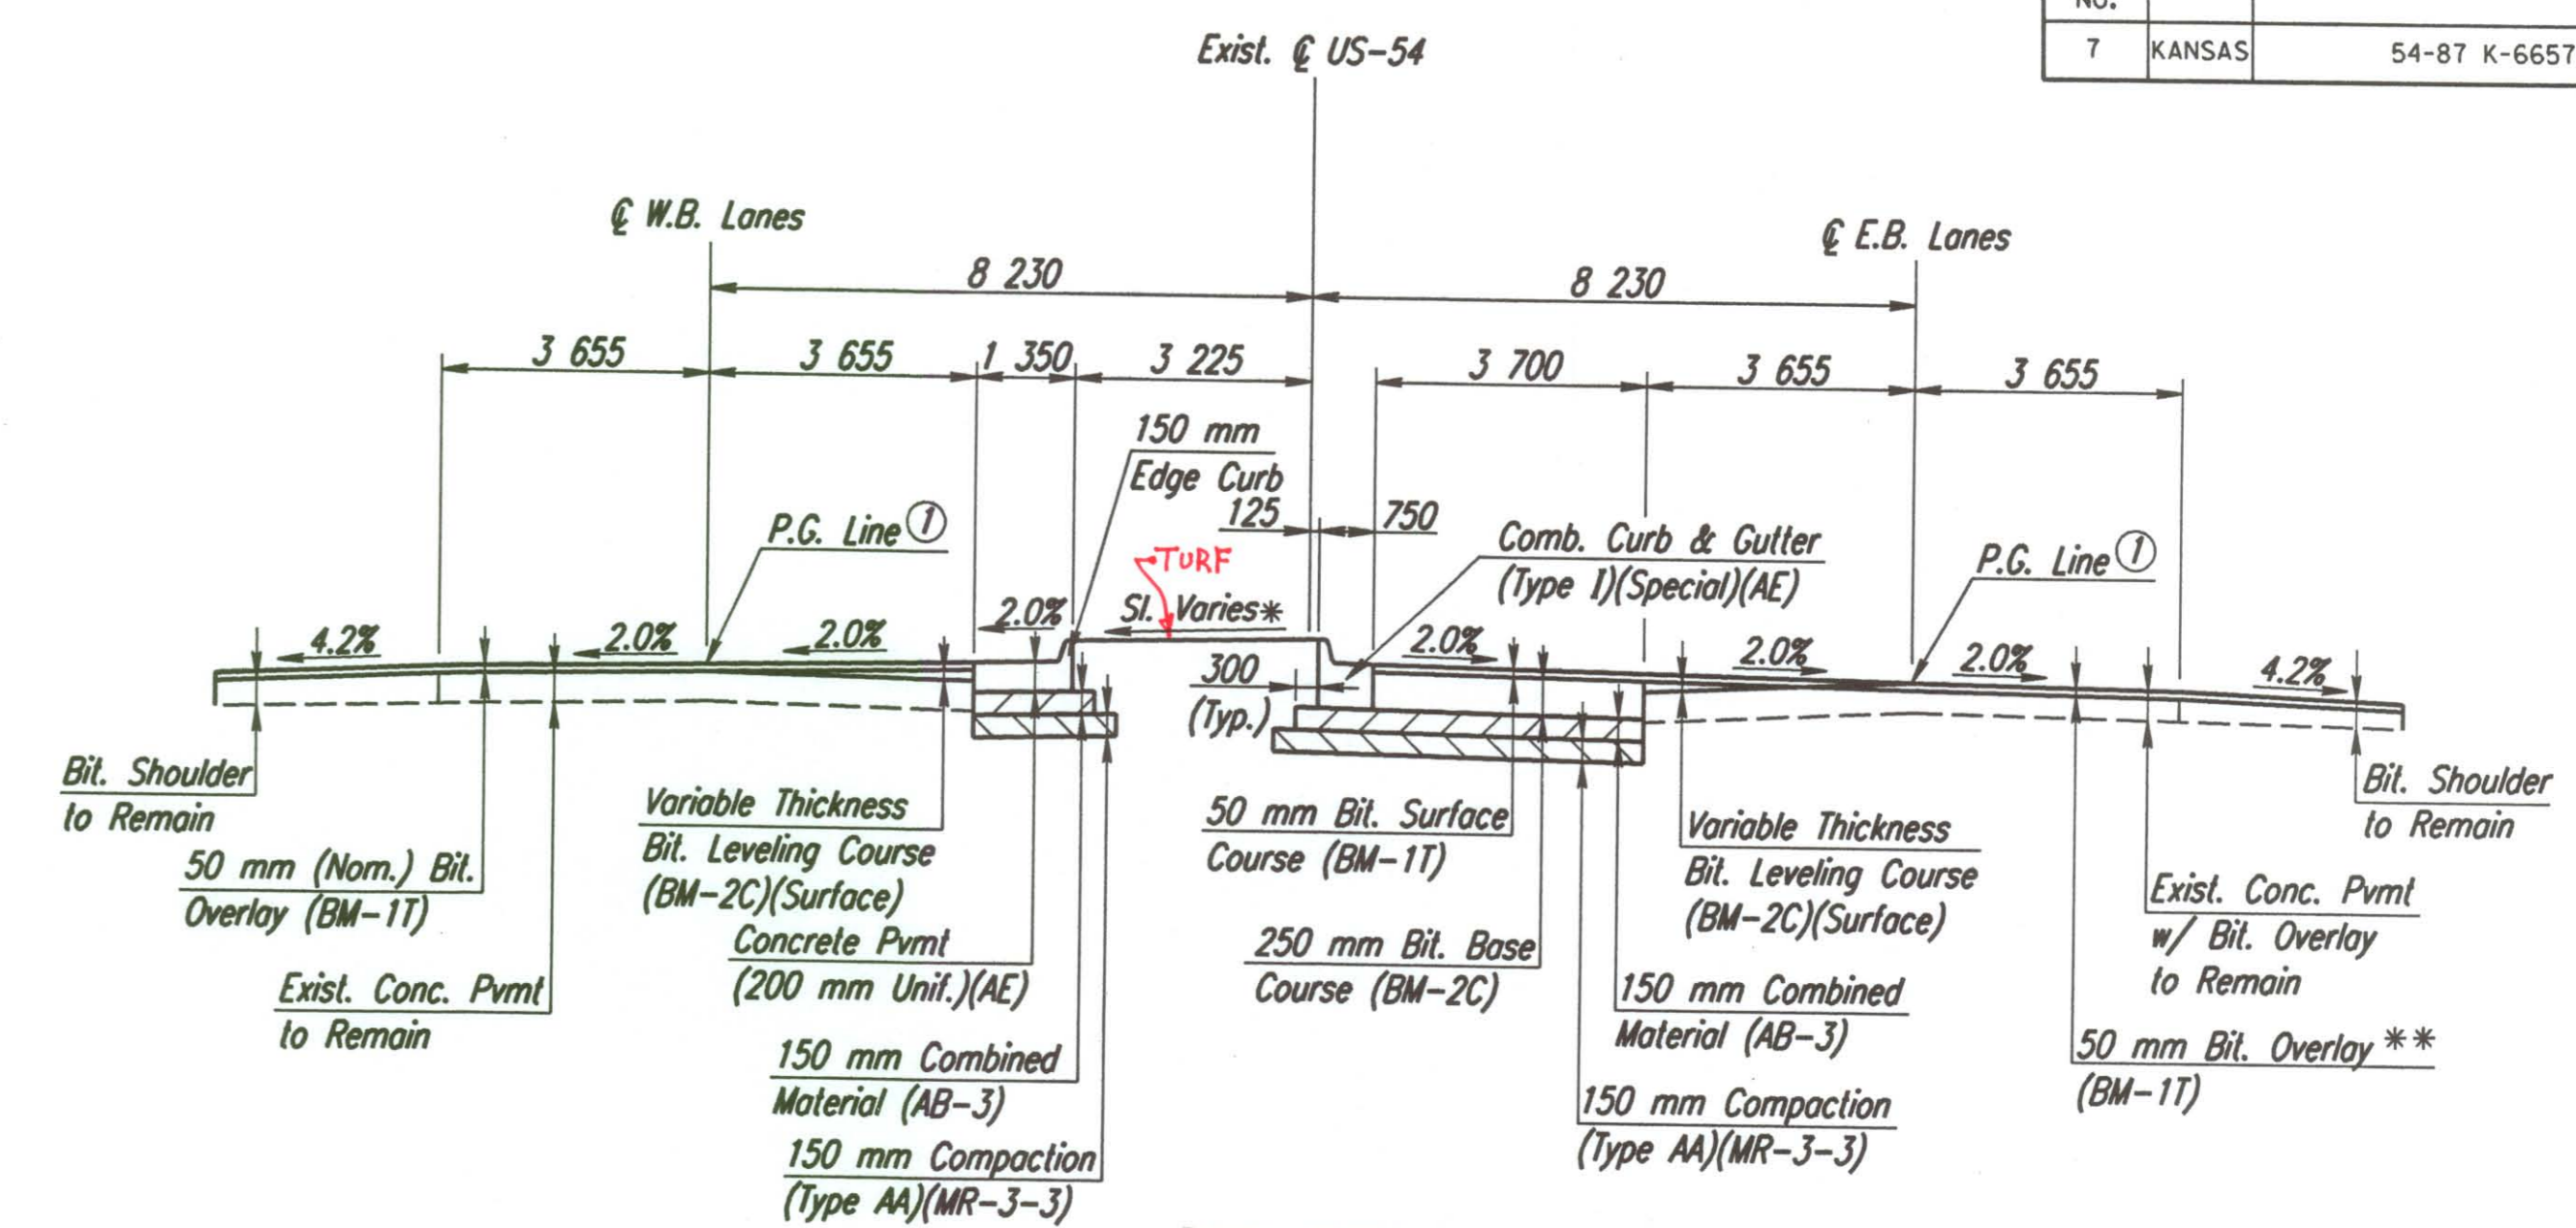 No.
7 KANSAS 54-87 K-6657
Exist. ℄ US-54
℄ W.B. Lanes
℄ E.B. Lanes
8 230
8 230
3 655
3 655
1 350
3 225
3 700
3 655
3 655
150 mm
Edge Curb
125
750
P.G. Line ①
TURF
Comb. Curb & Gutter
(Type I)(Special)(AE)
P.G. Line ①
4.2%
2.0%
2.0%
2.0%
Sl. Varies*
2.0%
2.0%
2.0%
4.2%
300
(Typ.)
Bit. Shoulder
to Remain
50 mm (Nom.) Bit.
Overlay (BM-1T)
Exist. Conc. Pvmt
to Remain
Variable Thickness
Bit. Leveling Course
(BM-2C)(Surface)
Concrete Pvmt
(200 mm Unif.)(AE)
150 mm Combined
Material (AB-3)
150 mm Compaction
(Type AA)(MR-3-3)
50 mm Bit. Surface
Course (BM-1T)
250 mm Bit. Base
Course (BM-2C)
Variable Thickness
Bit. Leveling Course
(BM-2C)(Surface)
150 mm Combined
Material (AB-3)
150 mm Compaction
(Type AA)(MR-3-3)
Bit. Shoulder
to Remain
Exist. Conc. Pvmt
w/ Bit. Overlay
to Remain
50 mm Bit. Overlay **
(BM-1T)